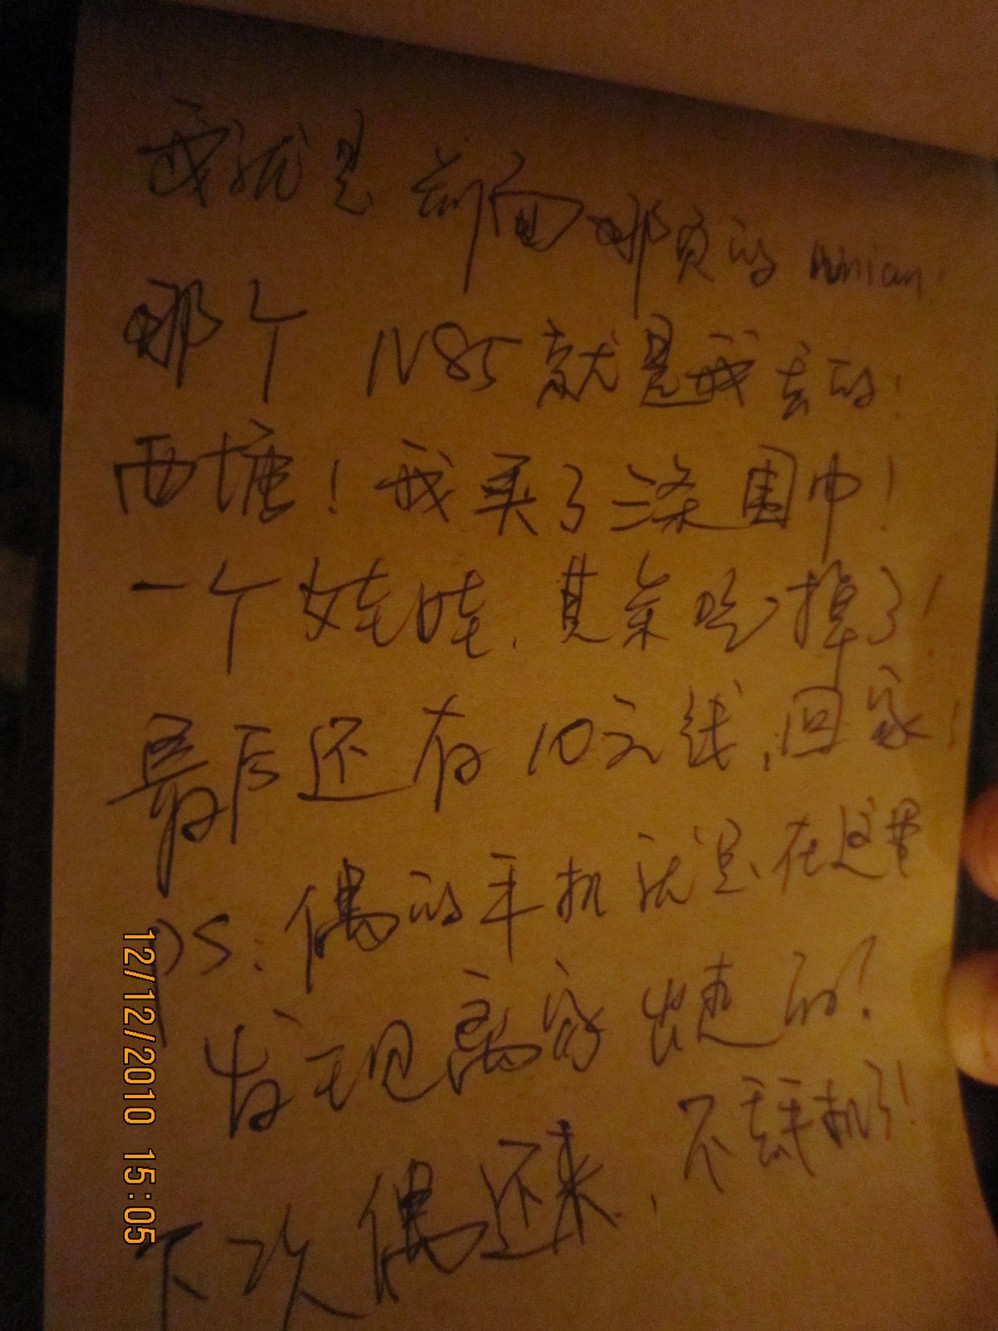 我就是前面那页的
那个 N85就是我丢的!
西塘!我买了三条围巾!
一个娃娃,其余吃掉了!
最后还有10元钱,回家!
PS: 偶的手机就是在这里
发现离家出走的!
下次偶还来,不丢手机了!
12/12/2010 15:05